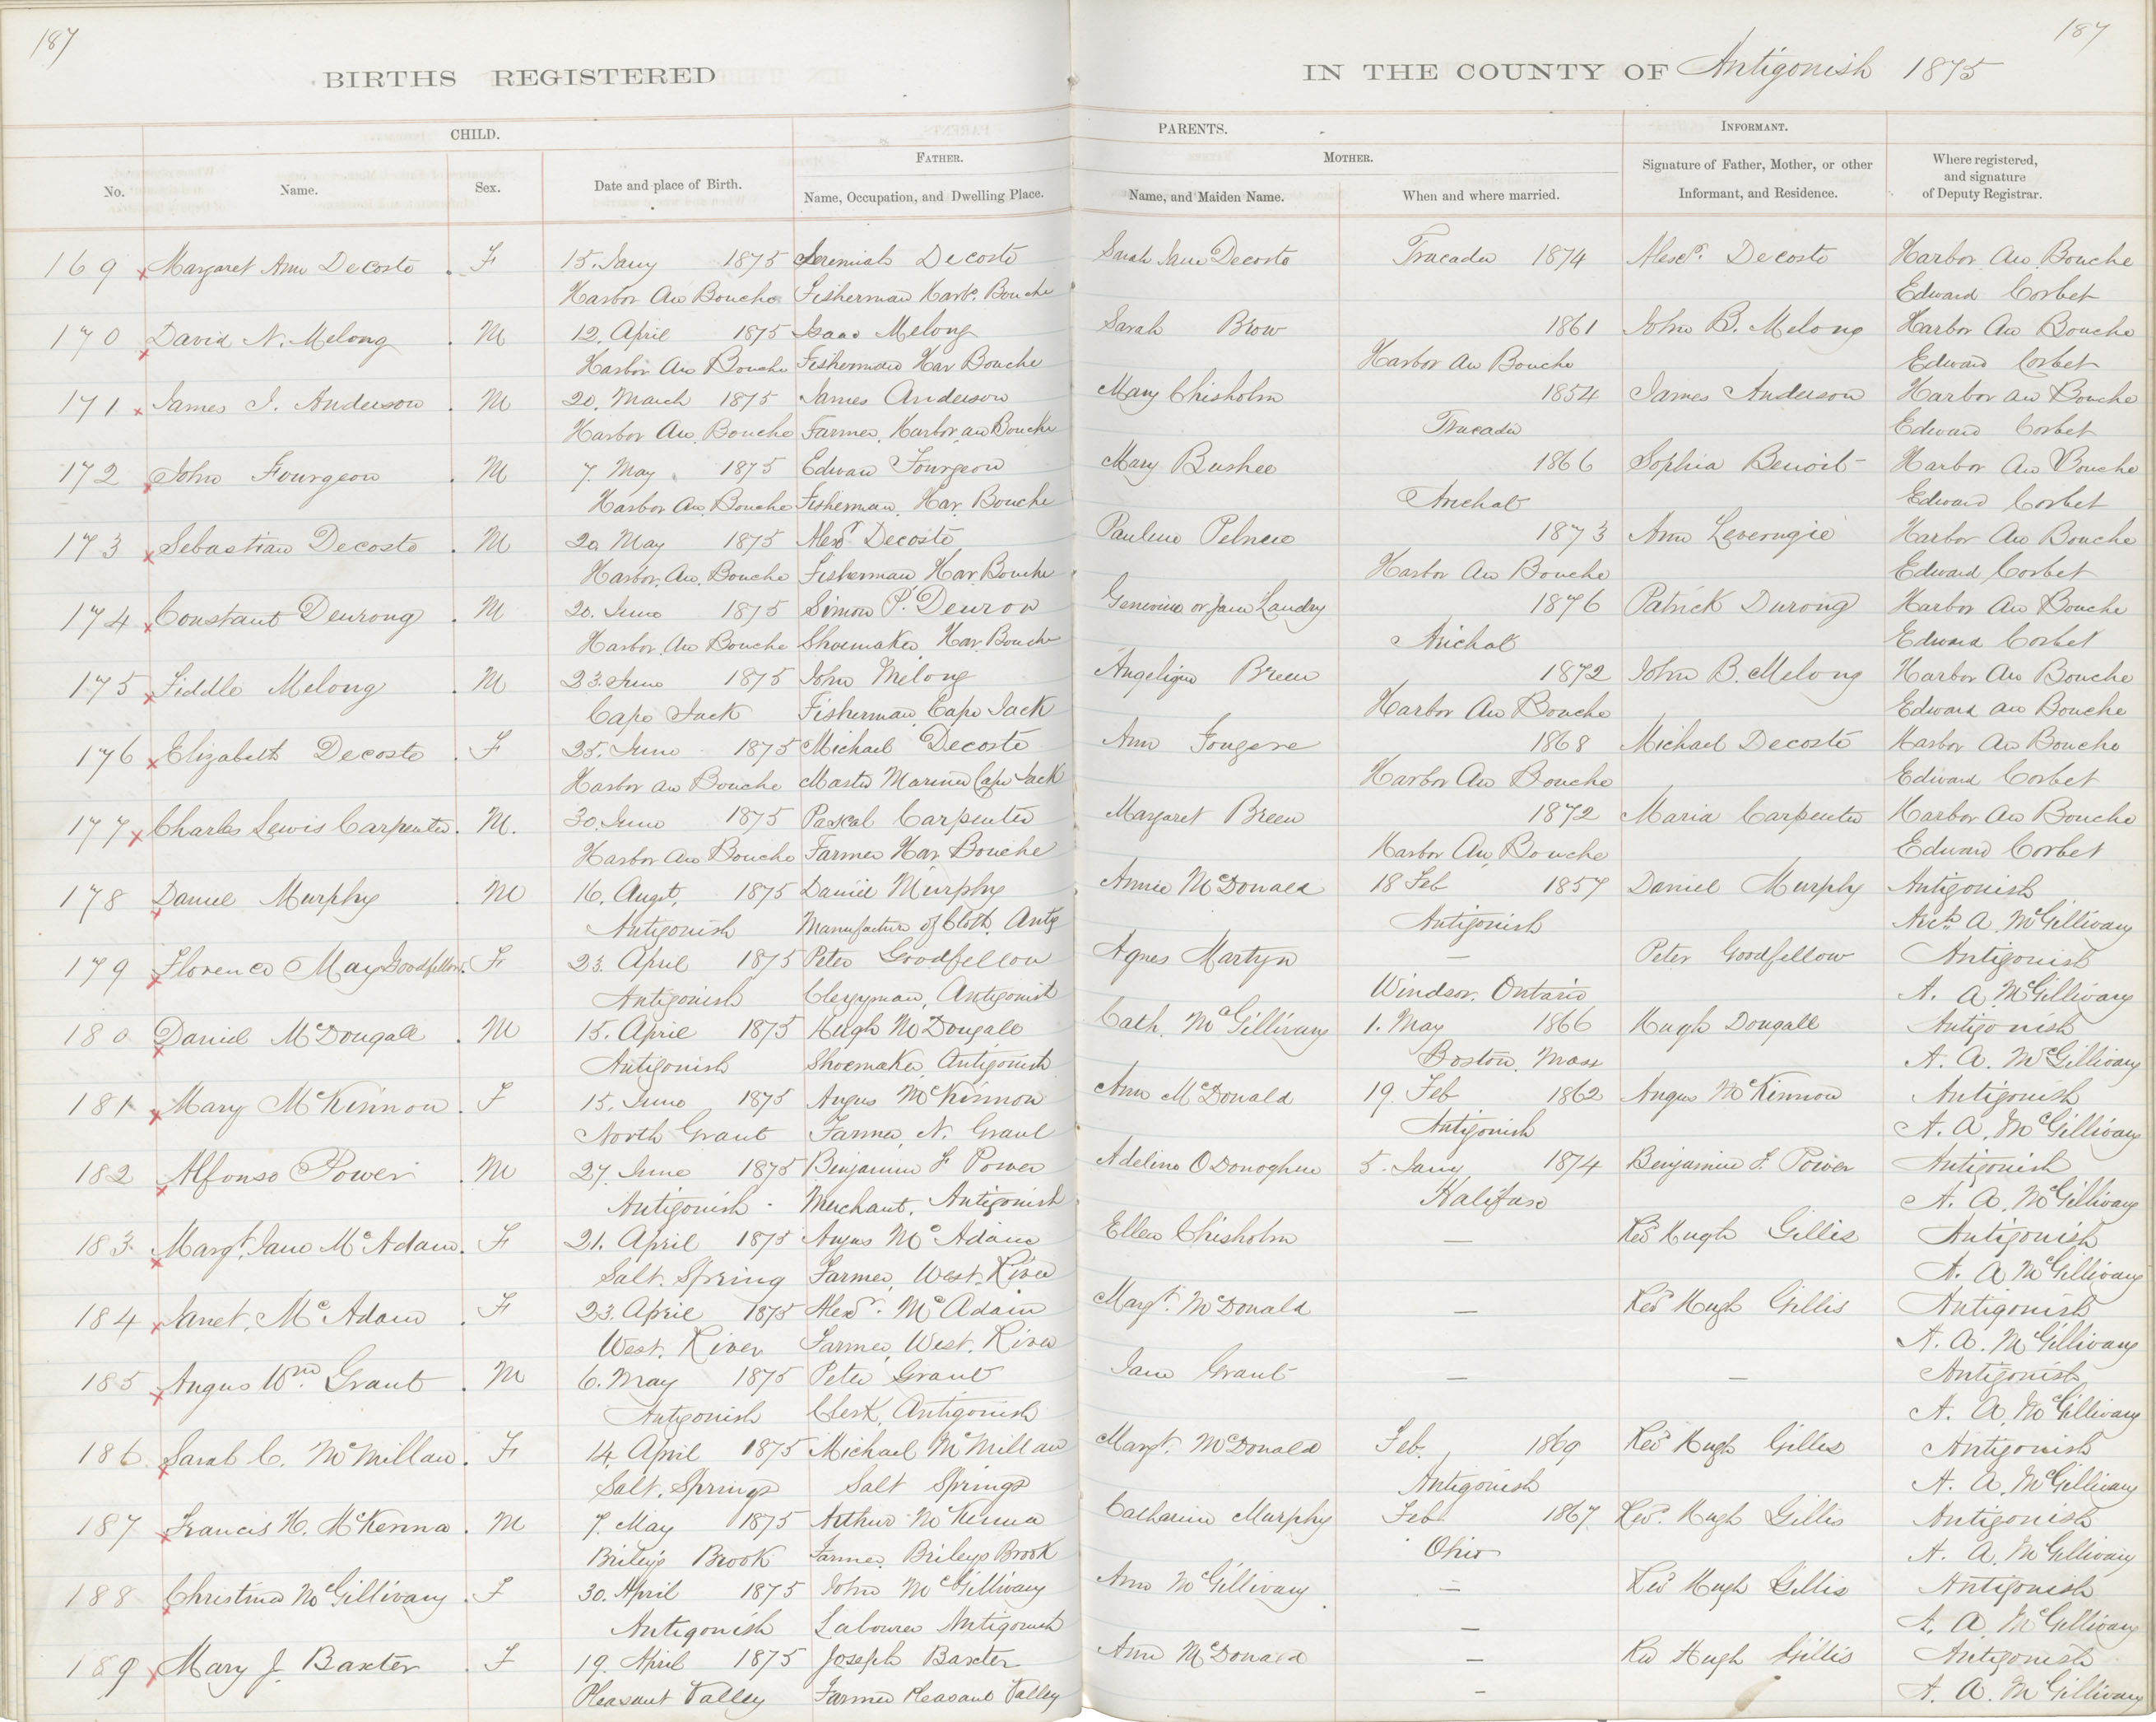 187
187
BIRTHS REGISTERED
IN THE COUNTY OF Antigonish 1875
CHILD.
PARENTS.
INFORMANT.
No.
Name.
Sex.
Date and place of Birth.
FATHER.
Name, Occupation, and Dwelling Place.
MOTHER.
Name, and Maiden Name.
When and where married.
Signature of Father, Mother, or other
Informant, and Residence.
Where registered,
and signature
of Deputy Registrar.
169 Margaret Ann Decoste F 15. Jany 1875 Jeremiah Decoste Sarah Jane Decoste Tracadie 1874 Alexr. Decoste Harbor Au Bouche
Harbor Au Bouche Fisherman Harbr. Bouche Edward Corbet
170 David N. Melong M 12. April 1875 Isaac Melong Sarah Brow 1861 John B. Melong Harbor Au Bouche
Harbor Au Bouche Fisherman Har Bouche Harbor Au Bouche Edward Corbet
171 James J. Anderson M 20. March 1875 James Anderson Mary Chisholm 1854 James Anderson Harbor au Bouche
Harbor Au Bouche Farmer, Harbor au Bouche Tracadie Edward Corbet
172 John Fourgeon M 7. May 1875 Edward Fourgeon Mary Bushee 1866 Sophia Benoit Harbor Au Bouche
Harbor Au Bouche Fisherman, Har. Bouche Arichat Edward Corbet
173 Sebastian Decoste M 20 May 1875 Alexr. Decoste Pauline 1873 Ann Leverngie Harbor Au Bouche
Harbor Au Bouche Fisherman, Har Bouche Harbor Au Bouche Edward Corbet
174 Constant Deurong M 20. June 1875 Simon P. Deuron Genevieve or Jane Landry 1876 Patrick Durong Harbor Au Bouche
Harbor Au Bouche Shoemaker, Har Bouche Arichat Edward Corbet
175 Fiddle Melong M 23. June 1875 John Melong Angelique Breen 1872 John B. Melong Harbor Au Bouche
Cape Jack Fisherman, Cape Jack Harbor Au Bouche Edward au Bouche
176 Elizabeth Decoste F 25. June 1875 Michael Decoste Ann Fougere 1868 Michael Decoste Harbor Au Bouche
Harbor au Bouche Master Mariner Cape Jack Harbor Au Bouche Edward Corbet
177 Charles Lewis Carpenter. M. 30. June 1875 Paskal Carpenter Margaret Breen 1872 Maria Carpenter Harbor Au Bouche
Harbor Au Bouche Farmer Har Bouche Harbor Au Bouche Edward Corbet
178 Daniel Murphy M 16. Augst. 1875 Daniel Murphy Annie McDonald 18 Feb 1857 Daniel Murphy Antigonish
Antigonish Manufacture of Cloth, Antg Antigonish Arch. A. McGillivary
179 Florence May Goodfellow. F 23. April 1875 Peter Goodfellow Agnes Martyn — Peter Goodfellow Antigonish
Antigonish Clergyman, Antigonish Windsor, Ontario A. A. McGillivary
180 Daniel McDougall M 15. April 1875 Hugh McDougall Cath. McGillivary 1. May 1866 Hugh Dougall Antigonish
Antigonish Shoemaker, Antigonish Boston, Mass A. A. McGillivary
181 Mary McKinnon. F 15. June 1875 Angus McKinnon Ann McDonald 19. Feb 1862 Angus McKinnon Antigonish
North Grant Farmer, N. Grant Antigonish A. A. McGillivary
182 Alfonso Power M 27. June 1875 Benjamin F Power Adeline O Donoghue 5. Jany 1874 Benjamin F. Power Antigonish
Antigonish Merchant, Antigonish Halifax A. A. McGillivary
183. Margt. Jane McAdam. F 21. April 1875 Angus McAdam Ellen Chisholm — Revd Hugh Gillis Antigonish
Salt. Spring Farmer, West. River A. A McGillivary
184 Janet. McAdam F 23. April 1875 Alexr. McAdam Margt. McDonald — Revd Hugh Gillis Antigonish
West. River Farmer, West. River A. A. McGillivary
185 Angus Wm. Grant M 6. May 1875 Peter Grant Jane Grant — — Antigonish
Antigonish Clerk, Antigonish A. A. McGillivary
186 Sarah C. McMillan. F 14. April 1875 Michael McMillan Margt. McDonald Feb. 1869 Revd Hugh Gillis Antigonish
Salt. Springs Salt Springs Antigonish A. A. McGillivary
187 Francis H. McKenna. M 7. May 1875 Arthur McKenna Catharine Murphy Feb 1867 Revd. Hugh Gillis Antigonish
Brileys Brook Farmer, Brileys Brook Ohio A. A. McGillivary
188 Christina McGillivary. F 30. April 1875 John McGillivary Ann McGillivary — Revd Hugh Gillis Antigonish
Antigonish Labourer Antigonish — A. A McGillivary
189 Mary J. Baxter F 19. April 1875 Joseph Baxter Ann McDonald — Rev Hugh Gillis Antigonish
Pleasant Valley Farmer Pleasant Valley — A. A. McGillivary